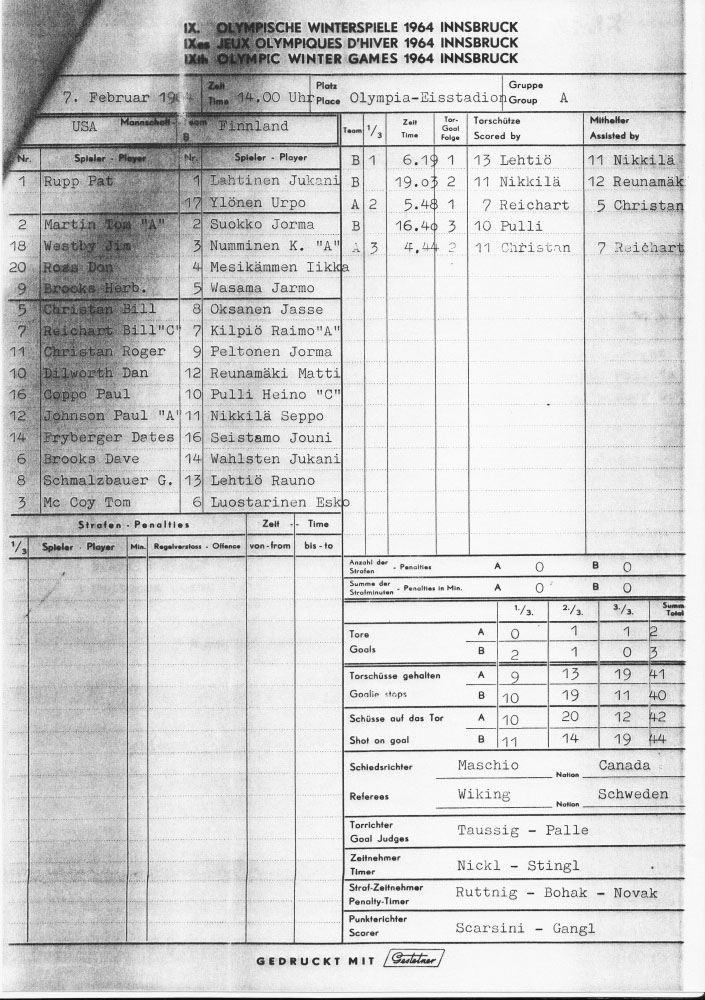 IX. OLYMPISCHE WINTERSPIELE 1964 INNSBRUCK
IXes JEUX OLYMPIQUES D'HIVER 1964 INNSBRUCK
IXth OLYMPIC WINTER GAMES 1964 INNSBRUCK
7. Februar 1964 Zeit Time 14.00 Uhr Platz Place Olympia-Eisstadion Gruppe Group A
USA Mannschaft - Team B Finnland
Nr. Spieler - Player Nr. Spieler - Player
1 Rupp Pat 1 Lahtinen Jukani
17 Ylönen Urpo
2 Martin Tom "A" 2 Suokko Jorma
18 Westby Jim 3 Numminen K. "A"
20 Ross Don 4 Mesikämmen Iikka
9 Brooks Herb. 5 Wasama Jarmo
5 Christan Bill 8 Oksanen Jasse
7 Reichart Bill"C" 7 Kilpiö Raimo"A"
11 Christan Roger 9 Peltonen Jorma
10 Dilworth Dan 12 Reunamäki Matti
16 Coppo Paul 10 Pulli Heino "C"
12 Johnson Paul "A" 11 Nikkilä Seppo
14 Fryberger Dates 16 Seistamo Jouni
6 Brooks Dave 14 Wahlsten Jukani
8 Schmalzbauer G. 13 Lehtiö Rauno
3 Mc Coy Tom 6 Luostarinen Esko
Team 1/3 Zeit Time Tor- Goal Folge Torschütze Scored by Mithelfer Assisted by
B 1 6.19 1 13 Lehtiö 11 Nikkilä
B 19.03 2 11 Nikkilä 12 Reunamäk
A 2 5.48 1 7 Reichart 5 Christan
B 16.40 3 10 Pulli
A 3 4.44 2 11 Christan 7 Reichart
Strafen - Penalties Zeit - Time
1/3 Spieler - Player Min. Regelverstoss - Offence von - from bis - to
Anzahl der Strafen - Penalties A 0 B 0
Summe der Strafminuten - Penalties in Min. A 0 B 0
1./3. 2./3. 3./3. Summe Total
Tore A 0 1 1 2
Goals B 2 1 0 3
Torschüsse gehalten A 9 13 19 41
Goalie stops B 10 19 11 40
Schüsse auf das Tor A 10 20 12 42
Shot on goal B 11 14 19 44
Schiedsrichter Maschio Nation Canada
Referees Wiking Nation Schweden
Torrichter
Goal Judges Taussig - Palle
Zeitnehmer
Timer Nickl - Stingl
Straf-Zeitnehmer
Penalty-Timer Ruttnig - Bohak - Novak
Punkterichter
Scorer Scarsini - Gangl
GEDRUCKT MIT Gestetner